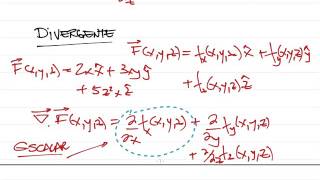 DIVERGENTE
F⃗(x,y,z) = fx(x,y,z) x̂ + fy(x,y,z) ŷ
+ fz(x,y,z) ẑ
F⃗(x,y,z) = 2x x̂ + 3xy ŷ
+ 5z²x ẑ
∇⃗ . F⃗(x,y,z) = ∂/∂x fx(x,y,z) + ∂/∂y fy(x,y,z)
+ ∂/∂z fz(x,y,z)
ESCALAR